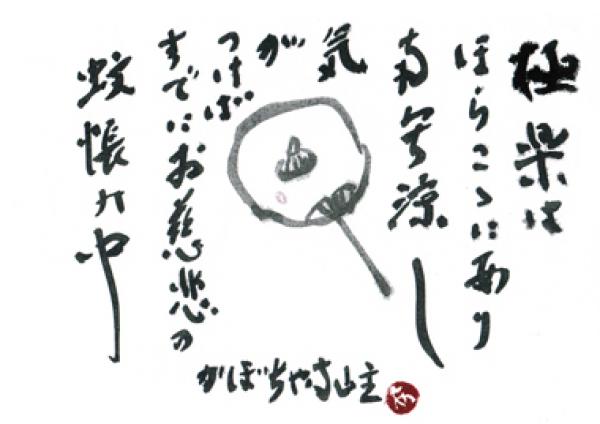 極楽は
ほらこゝに有り
南無涼し
気
が
つけば
すでにお慈悲の
蚊帳の中
かぼちゃ寺山主